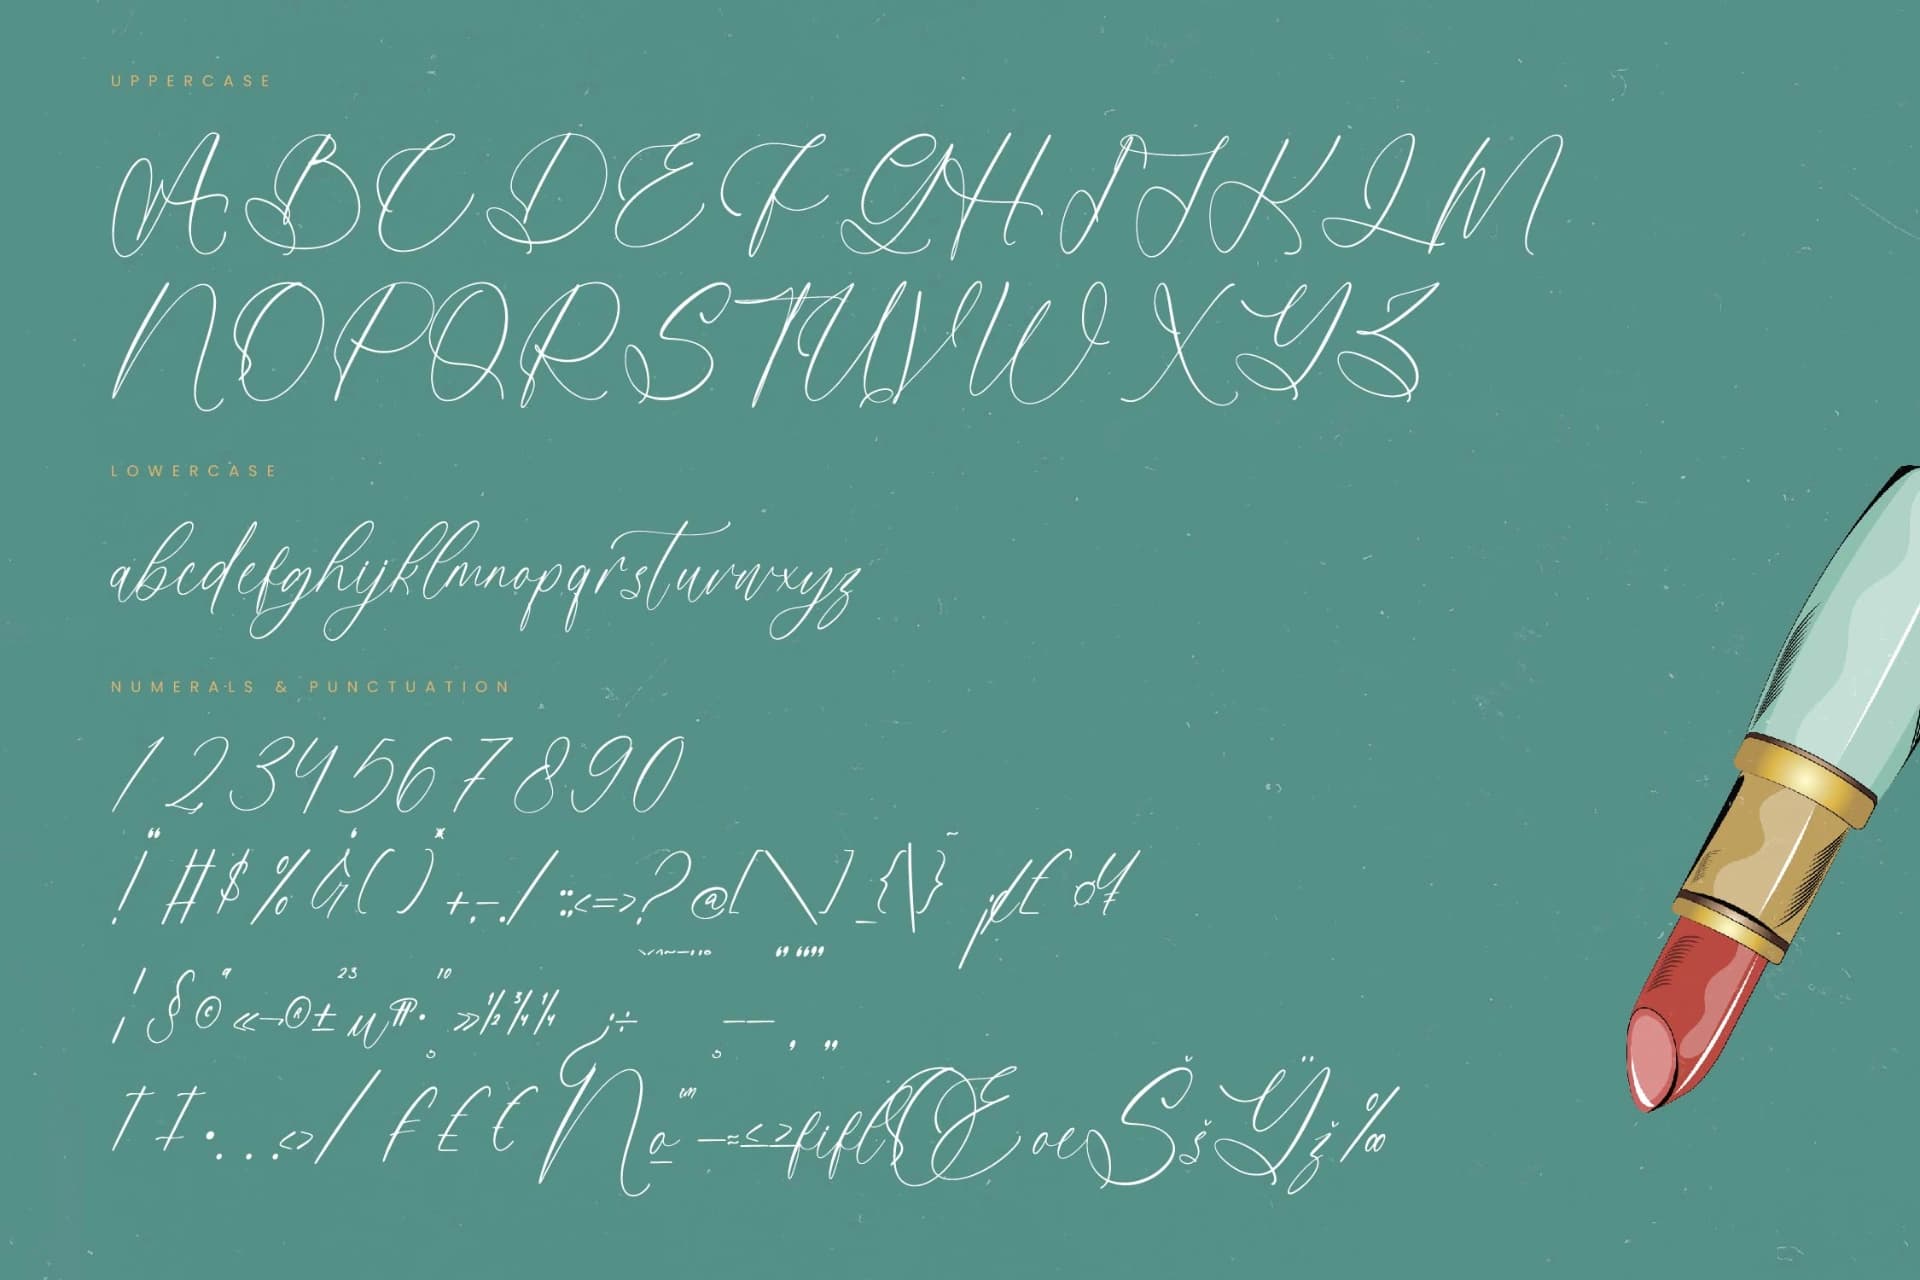 UPPERCASE
ABCDEFGHIJKLM
NOPQRSTUVWXYZ
LOWERCASE
abcdefghijklmnopqrstuvwxyz
NUMERALS & PUNCTUATION
1234567890
!“#$%&‘()*+,-./:;<=>?@[\]_{|}~¡¢£¤¥
¦§©ª«¬®±²³µ¶·¹º»½¾¼¿÷
†‡•…‹›⁄ƒ₤€Nº™−≈≤≥fiflŒœŠšŸž‰